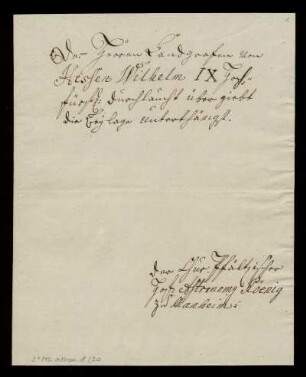 Des Herren Landgrafen von
Hessen Wilhelm IX Hoch-
fürstl. Durchlaucht über giebt
die Beylage unterthänigst.
der Chur-Pfältzischer
Hof Astronomg König
zu Manheim.